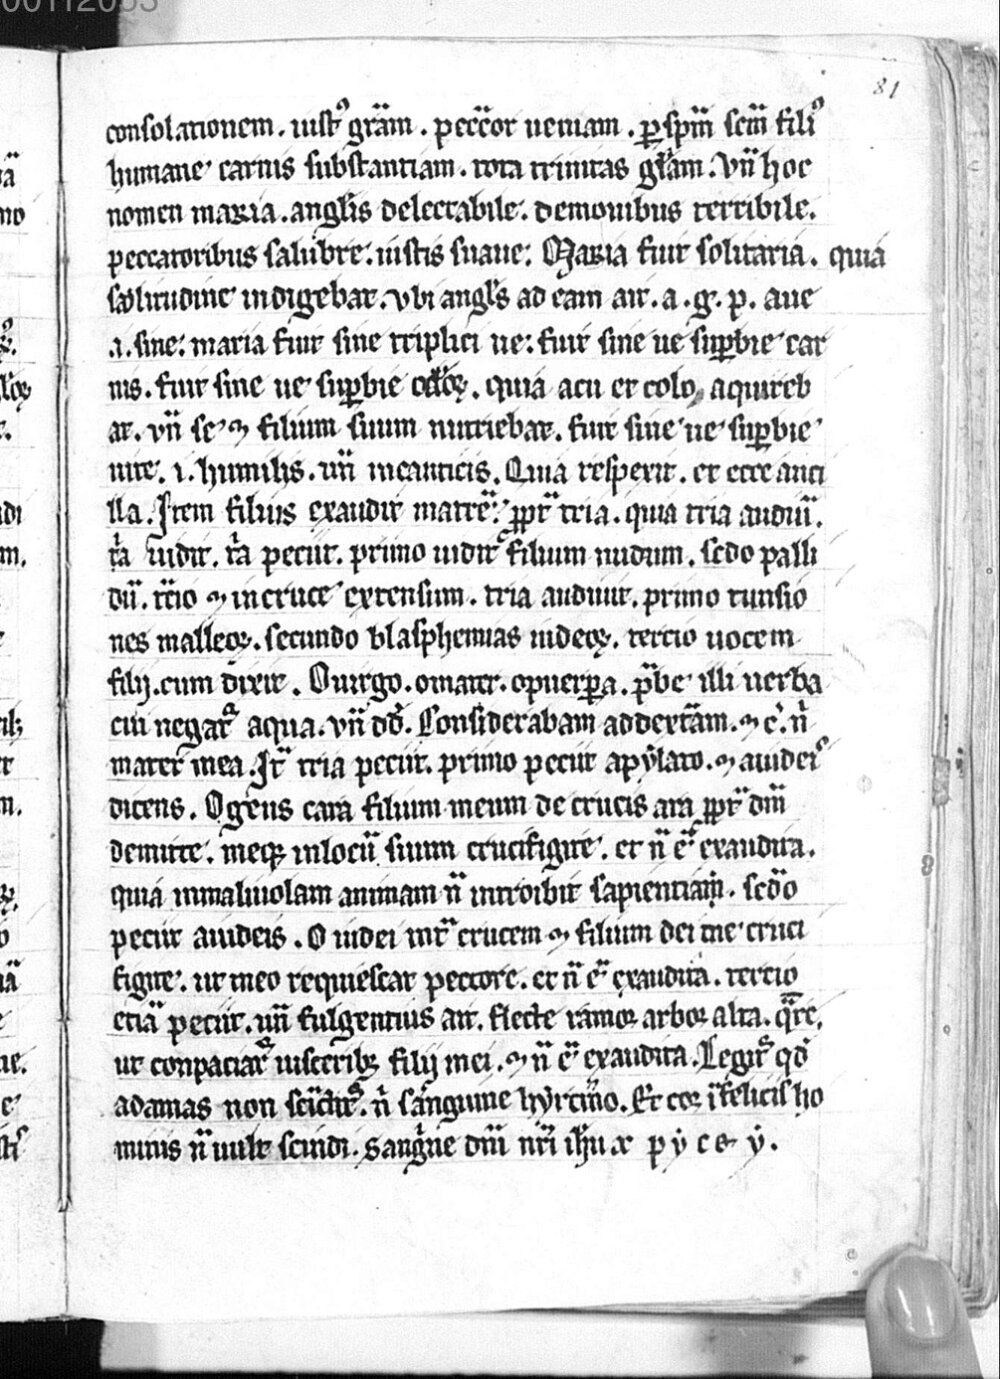 81
consolationem . iust᷒ gr̃am . pecc̃or ueniam . ꝑ spm̃ scm̃ fili᷒
humane carnis substantiam . tota trinitas gl̃am . Vn̄ hoc
nomen maria . angl̃is delectabile . demonibus terribile .
peccatoribus salubre . iustis suaue : Maria fuit solitaria . quia
solitudine indigebat . vbi angl̃s ad eam ait . a . g . p . aue
.i. sine : maria fuit sine triplici ue : fuit sine ue suꝑbie car
nis . fuit sine ue suꝑbie . quia acu et colo aquireb
at . vn̄ se ⁊ filium suum nutriebat . fuit sine ue suꝑbie
uite . i . humilis . un̄ in canticis . Quia respexit . et ecce anci
lla . Item filius exaudit matrē : ꝓpt̃ tria . quia tria audiu̅ .
t̃a uidit . t̃a petiit . primo uidit filium nudum . scd̃o palli
dū . tc̃io ⁊ in cruce extensum . tria audiuit . primo tunsio
nes malleoꝝ . secundo blasphemias iudeoꝝ . tercio uocem
filij . cum dixit . O uirgo . o mater . o puerꝑa . p̃be illi uerba
cui negat᷑ aqua . vn̄ dd̃ . Considerabam ad dext̃am . ⁊ c̓ . n̓
mater mea . It̃ tria petiit . primo petiit a pẏlato . ⁊ a iudeis
dicens . O gens cara filium meum de crucis ara ꝓpt̃ dm̃
demitte . meqꝫ in locū suum crucifigite . et n̄ ē exaudita .
quia in maliuolam animam n̄ introibit sapientiam . scd̃o
petiit a iudeis . O iudei mr̃ crucem ⁊ filium dei me cruci
figite . ut meo requiescat pectore . et n̄ ē exaudita . tercio
etiā petiit . un̄ fulgentius ait . flecte ramos arbor alta . q̃re .
ut conpaciar᷑ uisceribꝫ filij mei . ⁊ n̄ ē exaudita . Legit᷑ qd̃
adamas non . n̓ sangwine hẏrcino . Et cor ĩfelicis ho
minis n̄ uult scindi . sangⁱne dn̄i nr̃i ih̃u x p ẏ c e ẏ .